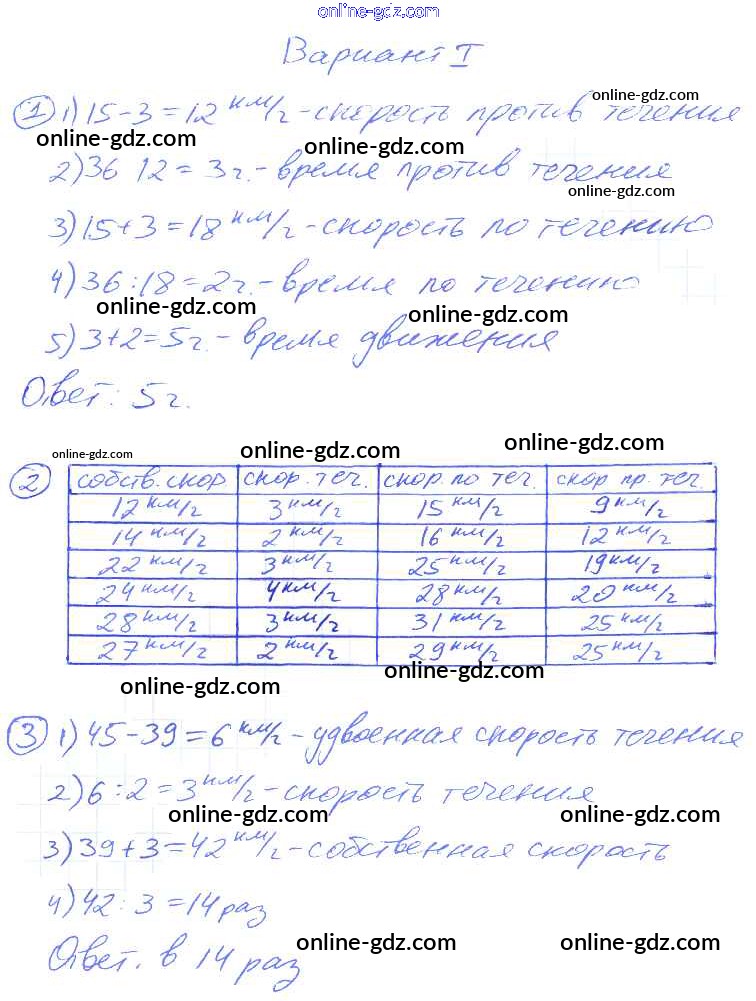 online-gdz.com
Вариант I
1 1) 15-3=12 км/г - скорость против течения
online-gdz.com
online-gdz.com online-gdz.com
2) 36 12 = 3 г. - время против течения
online-gdz.com
3) 15+3=18 км/г - скорость по течению
4) 36:18=2 г. - время по течению
online-gdz.com online-gdz.com
5) 3+2=5 г. - время движения
Ответ: 5 г.
online-gdz.com online-gdz.com online-gdz.com
2 собств. скор скор. теч. скор. по теч. скор пр. теч.
12 км/г 3 км/г 15 км/г 9 км/г
14 км/г 2 км/г 16 км/г 12 км/г
22 км/г 3 км/г 25 км/г 19 км/г
24 км/г 4 км/г 28 км/г 20 км/г
28 км/г 3 км/г 31 км/г 25 км/г
27 км/г 2 км/г 29 км/г 25 км/г
online-gdz.com online-gdz.com
3 1) 45-39=6 км/г - удвоенная скорость течения
2) 6:2=3 км/г - скорость течения
online-gdz.com online-gdz.com
3) 39+3=42 км/г - собственная скорость
4) 42:3=14 раз
online-gdz.com online-gdz.com
Ответ. в 14 раз